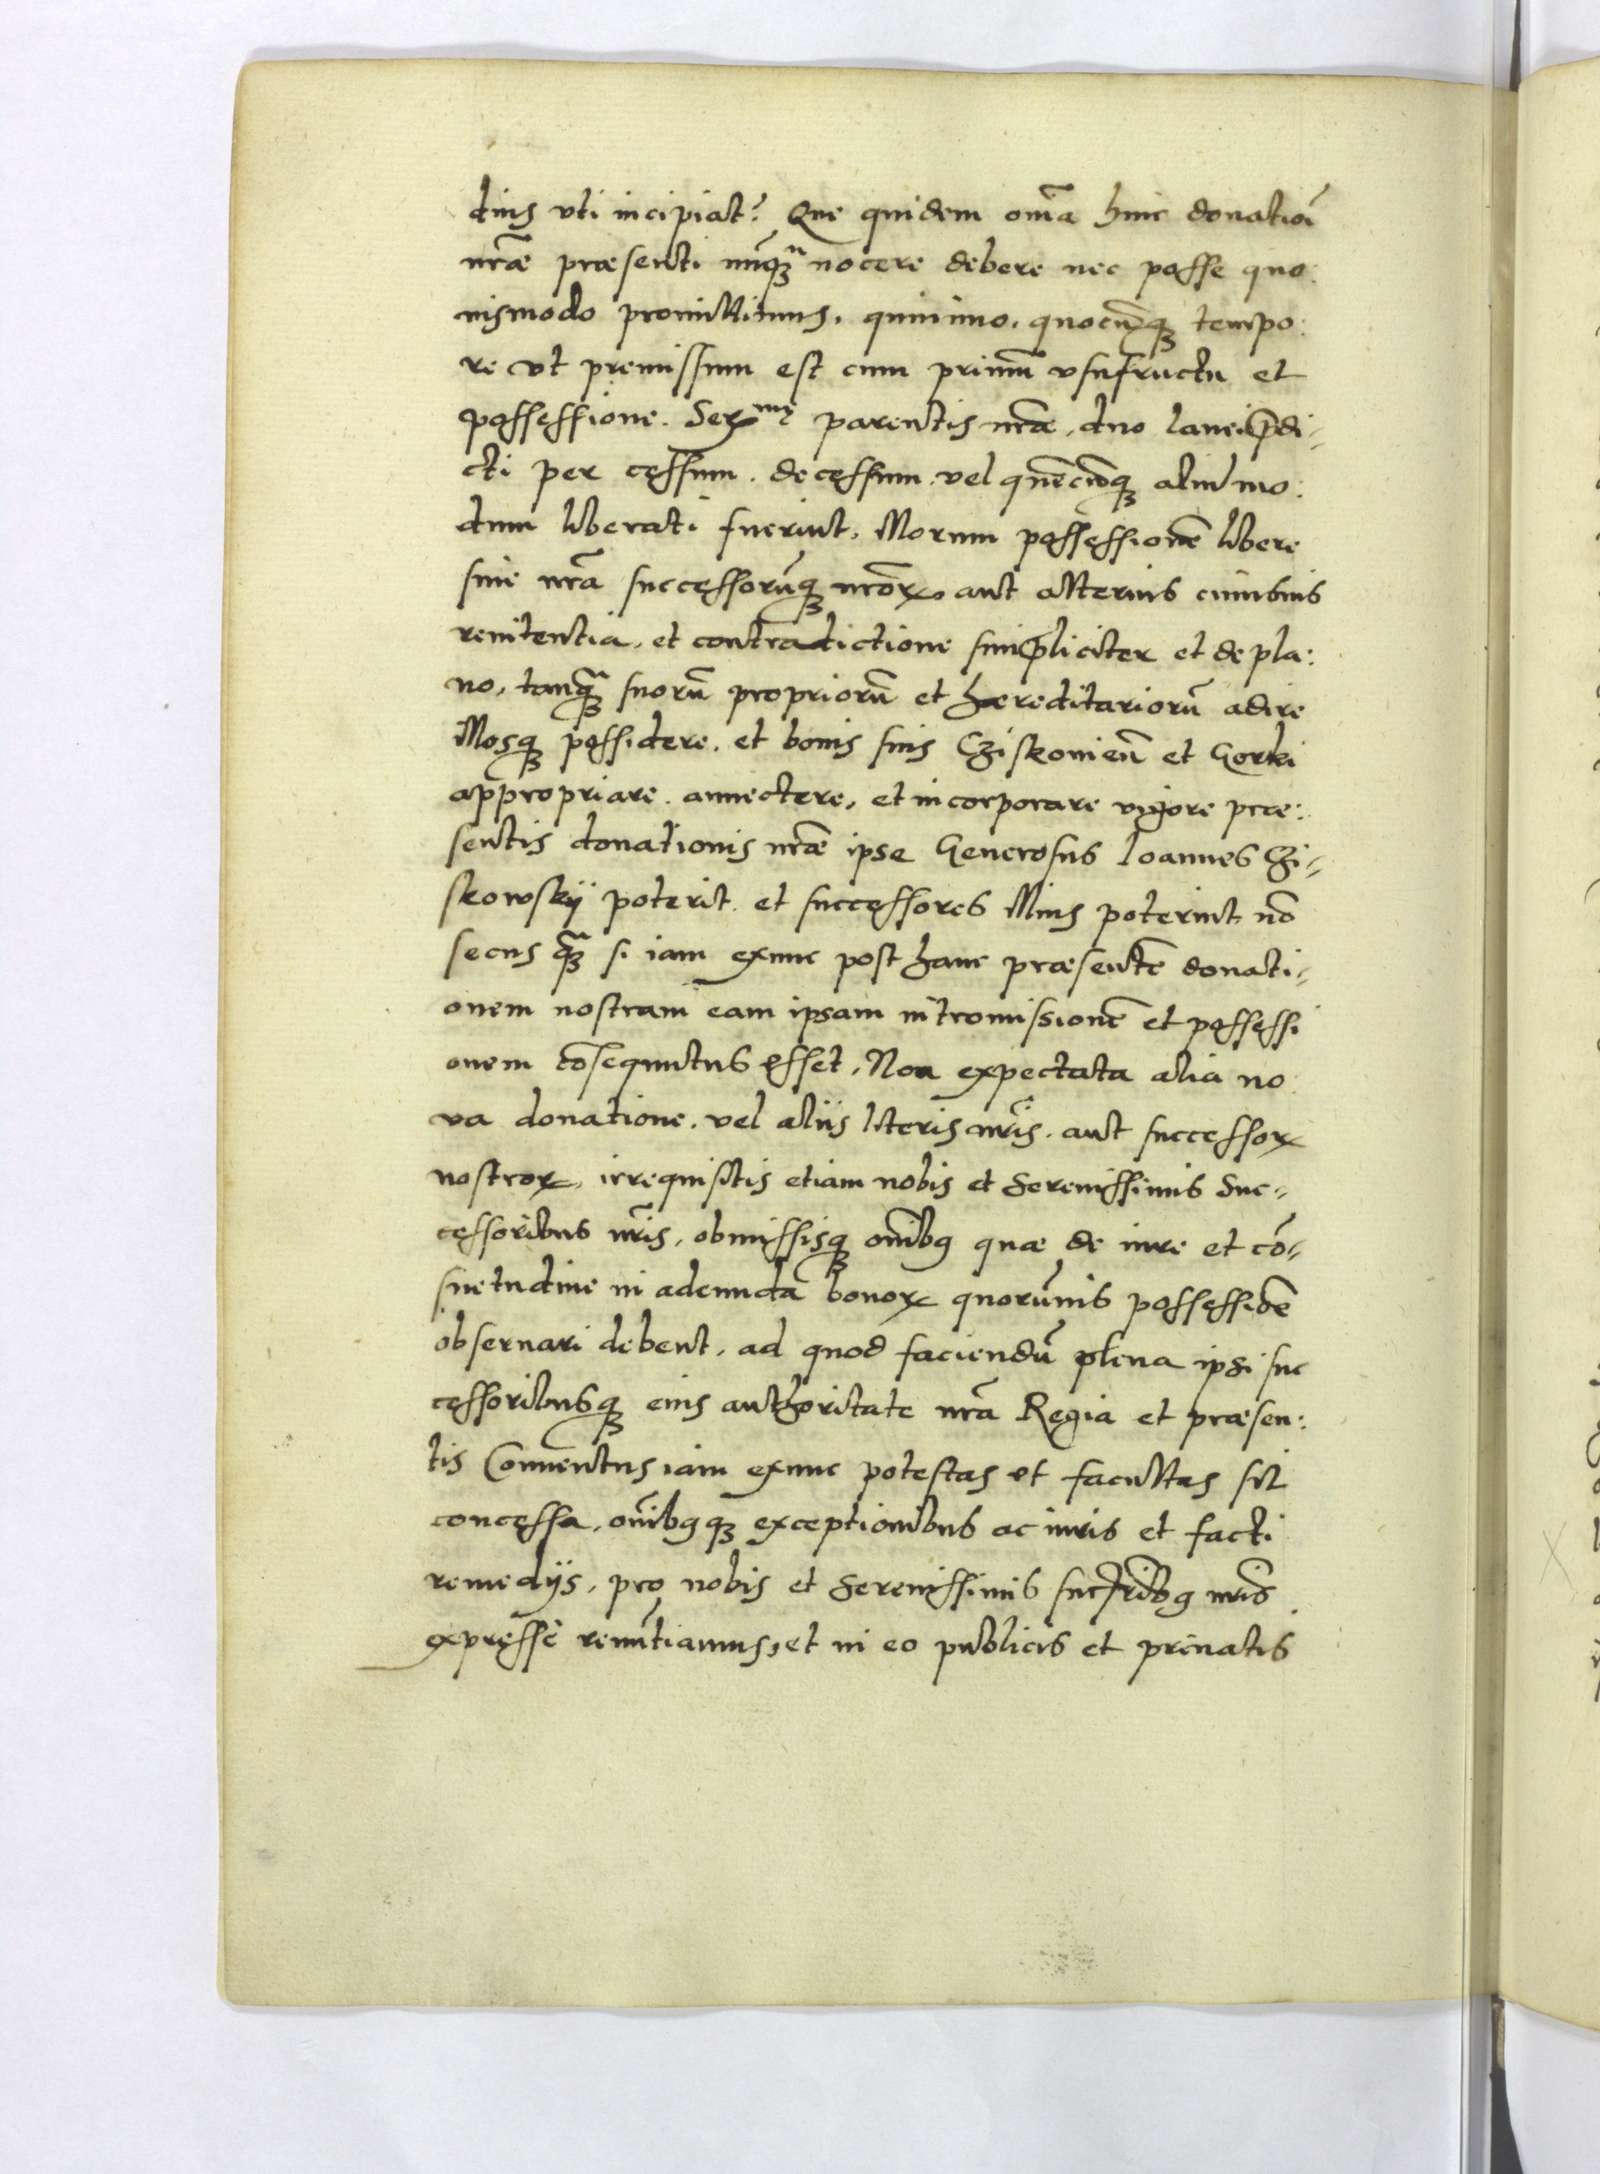 dius vti incipiat? Que quidem om̃a huic donatioĩ
nr̃ae praesenti nũq̃ nocere debere nec posse quo:
uismodo promittimus, quinimo, quocũq; tempo:
re vt premissum est cum primũ vsufructu et
possessione. Ser^mę parentis nr̃ae, duo lanei p̃di-
cti per cessum. decessum. vel quẽcũq; aliud mo:
dum liberati fuerint, Illorum possessionẽ libere
sine nr̃a successorũq; nr̃orꝝ aut alterius cuiusuis
renitentia, et contradictione simpliciter et de pla:
no, tanq̃ suorũ propriorũ et haereditariorũ adire
Illosq; possidere, et bonis suis Cziskowieñ et Gorki
appropriare. annectere, et incorporare vigore prae:
sentis donationis nr̃ae ipse Generosus Ioannes Czi-
skowskij poterit. et successores illius poterint, nõ
secus q̃ si iam exnunc post hanc praesentẽ donati-
onem nostram eam ipsam intromissionẽ et possessi
onem cõsequutus esset, Non expectata alia no
va donatione. vel aliis literis nr̃is. aut successorꝝ
nostrorꝝ, irrequisitis etiam nobis et Serenissimis Suc-
cessoribus nr̃is, obmissisq; om̃ibꝰ quae de iure et cõ-
suetudine in adeunda bonorꝝ quorũuis possessiõe
obseruari debent, ad quod faciendũ plena ipsi suc
cessoribusq; eius authoritate nr̃a Regia et praesen:
tis Conuentus iam exnunc potestas et facultas sit
concessa, om̃ibꝰq; exceptionibus ac iuris et facti
remedijs, pro nobis et Serenissimis succr̃ibꝰ nr̃is
expressè renũtiamus, et in eo publicis et priuatis